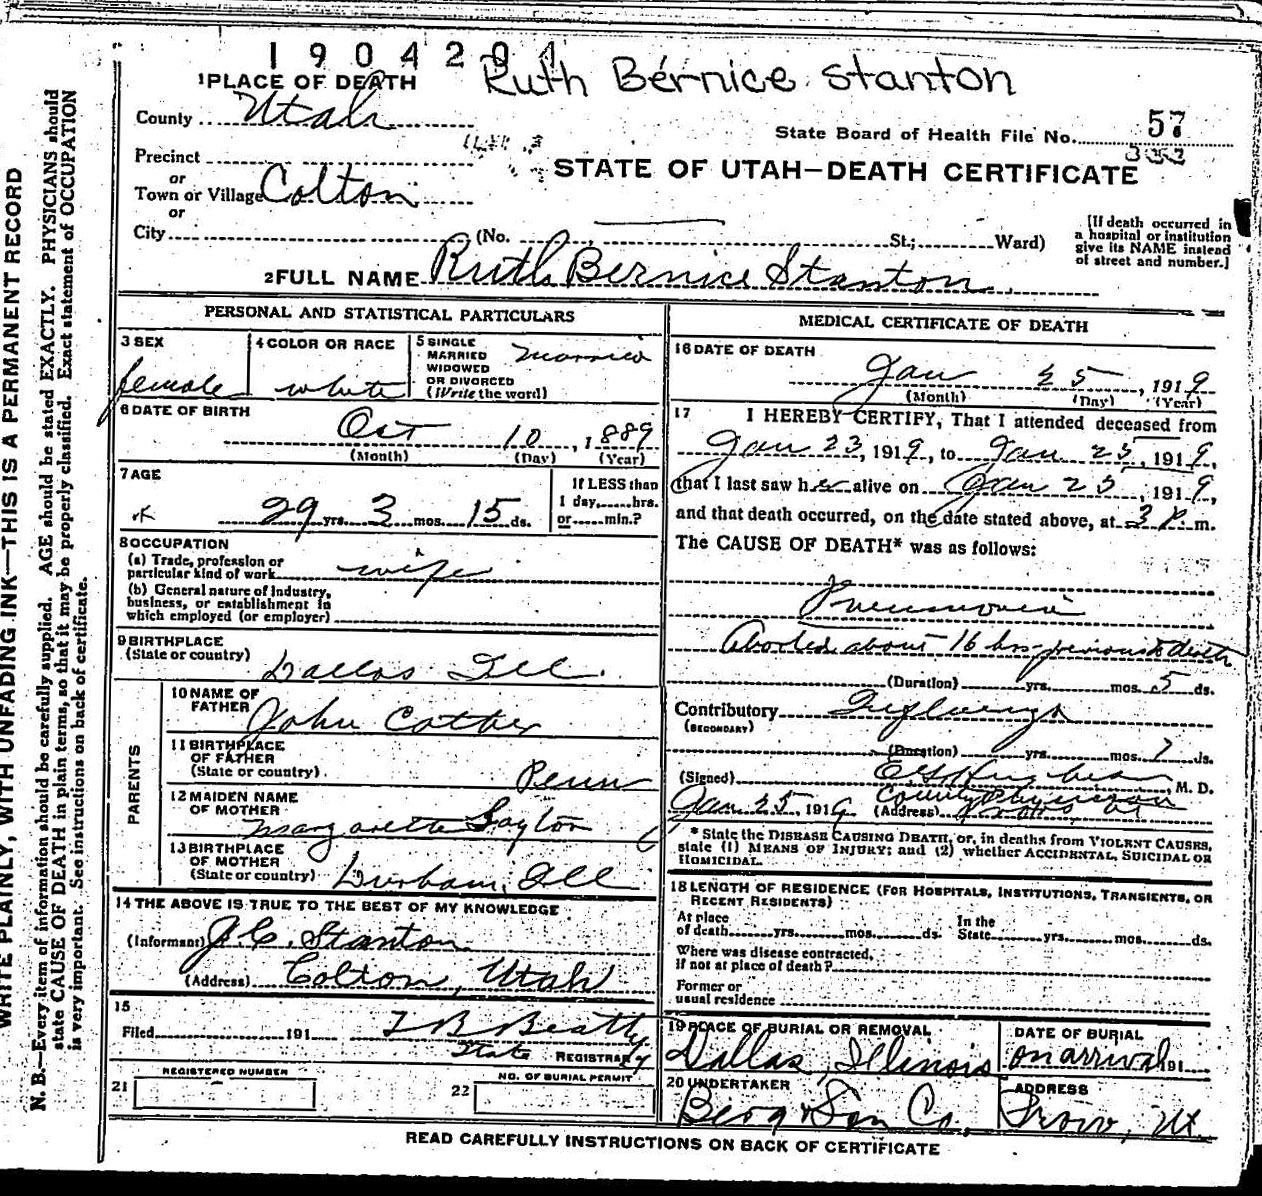 1904204
Ruth Bernice Stanton
1 PLACE OF DEATH
County Utah
State Board of Health File No. 57
Precinct
or
STATE OF UTAH—DEATH CERTIFICATE
Town or Village Colton
or
City (No. St.; Ward)
[If death occurred in
a hospital or institution
give its NAME instead
of street and number.]
2 FULL NAME Ruth Bernice Stanton
PERSONAL AND STATISTICAL PARTICULARS
3 SEX
female
4 COLOR OR RACE
white
5 SINGLE
MARRIED
WIDOWED
OR DIVORCED
(Write the word)
married
6 DATE OF BIRTH
Oct 10, 1889
(Month) (Day) (Year)
7 AGE
29 yrs. 3 mos. 15 ds.
If LESS than
1 day, hrs.
or min.?
8 OCCUPATION
(a) Trade, profession or
particular kind of work wife
(b) General nature of Industry,
business, or establishment in
which employed (or employer)
9 BIRTHPLACE
(State or country) Dallas Ill.
PARENTS
10 NAME OF
FATHER John
11 BIRTHPLACE
OF FATHER
(State or country) Penn
12 MAIDEN NAME
OF MOTHER Margarette
13 BIRTHPLACE
OF MOTHER
(State or country) Durham, Ill
14 THE ABOVE IS TRUE TO THE BEST OF MY KNOWLEDGE
(Informant) J. C. Stanton
(Address) Colton, Utah
15
Filed 191 T B Beatty
State REGISTRAR
REGISTERED NUMBER
21
NO. OF BURIAL PERMIT
22
MEDICAL CERTIFICATE OF DEATH
16 DATE OF DEATH
Jan 25, 1919
(Month) (Day) (Year)
17 I HEREBY CERTIFY, That I attended deceased from
Jan 23, 1919, to Jan 25, 1919,
that I last saw her alive on Jan 25, 1919,
and that death occurred, on the date stated above, at 3 P. m.
The CAUSE OF DEATH* was as follows:
Pneumonia
Aborted about 16 hrs previous to death
(Duration) yrs. mos. 5 ds.
Contributory Influenza
(SECONDARY)
(Duration) yrs. mos. 7 ds.
(Signed) M. D.
Jan 25, 1919 (Address) County Physician
* State the DISEASE CAUSING DEATH, or, in deaths from VIOLENT CAUSES,
state (1) MEANS OF INJURY; and (2) whether ACCIDENTAL, SUICIDAL OR
HOMICIDAL.
18 LENGTH OF RESIDENCE (FOR HOSPITALS, INSTITUTIONS, TRANSIENTS, OR
RECENT RESIDENTS)
At place
of death yrs. mos. ds.
In the
State yrs. mos. ds.
Where was disease contracted,
if not at place of death?
Former or
usual residence
19 PLACE OF BURIAL OR REMOVAL
Dallas, Illinois
DATE OF BURIAL
on arrival 191
20 UNDERTAKER
Berg & Son Co.
ADDRESS
Provo, Ut.
READ CAREFULLY INSTRUCTIONS ON BACK OF CERTIFICATE
WRITE PLAINLY, WITH UNFADING INK—THIS IS A PERMANENT RECORD
N. B.—Every item of information should be carefully supplied. AGE should be stated EXACTLY. PHYSICIANS should
state CAUSE OF DEATH in plain terms, so that it may be properly classified. Exact statement of OCCUPATION
is very important. See instructions on back of certificate.